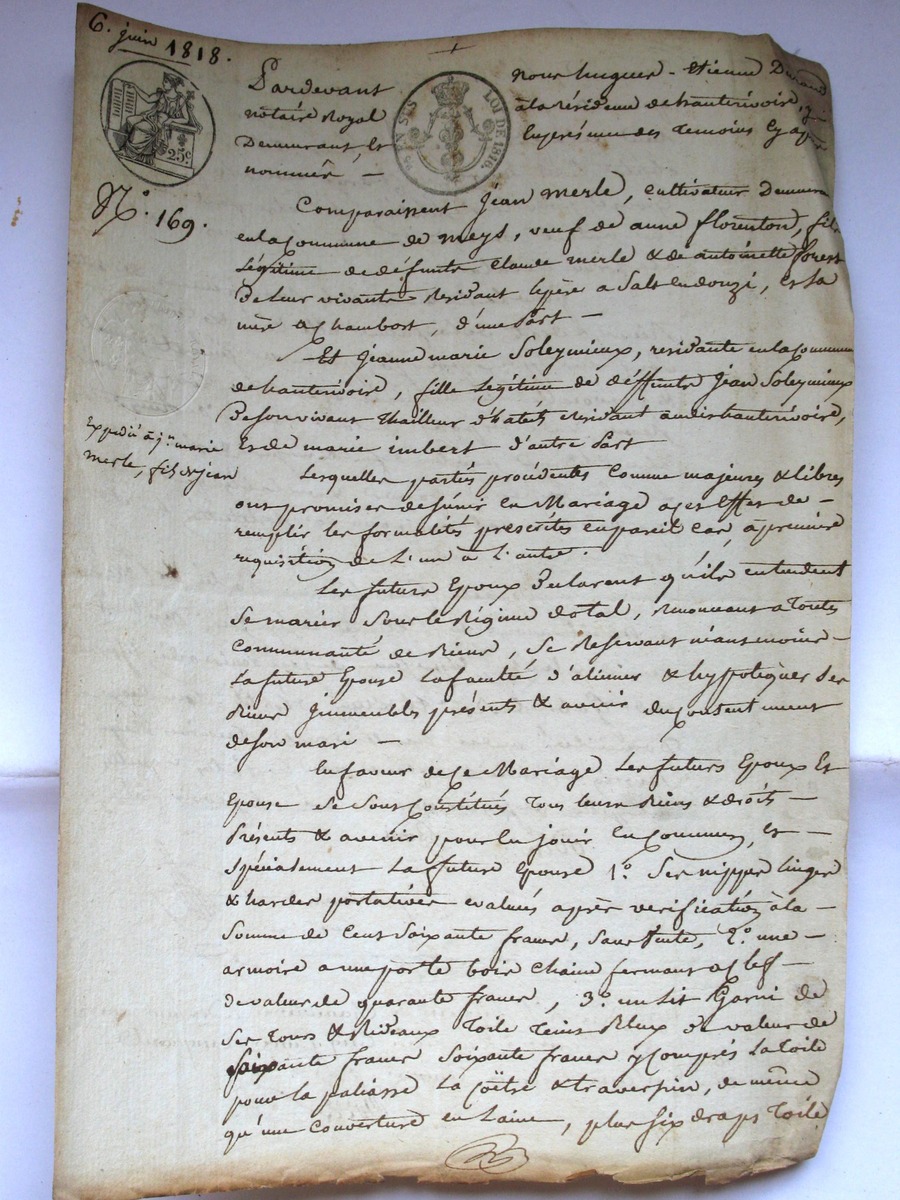 6. juin 1818.
Pardevant nous hugues - Etienne Durand
notaire Royal à la résidence de hauterivoire, y
Demeurant et en présence des temoins cy après
nommés —
25c
EN SUS LOI DE 1816.
N.° 169.
Comparaissent jean merle, cultivateur Demeurant
en la Commune de meys, veuf de anne florenton, fils
légitime de défunts Claude merle & de antoinette forest
De leur vivants Résidant le père a Salt en douzi, et la
mère a Chambost, d'une part —
Et jeanne marie Soleymieux, residante en la Commune
de hauterivoire, fille légitime de déffunts jean Soleymieux
De son vivant thailleur d'habits résidant audit hauterivoire,
Et de marie imbert d'autre part
Expédié à jn marie
merle, fils de jean
Lesquelles parties procédentes comme majeures & libres
ont promis de s'unir en Mariage a cet effet de —
remplir les formalités prescrites en pareil cas, a premiere
requisition de L'une à L'autre.
Les futurs Epoux Déclarent qu'ils entendent
Se marier Sous le Régime dotal, renonceant a toutes
Communauté de Biens, Se Reservant néanmoins —
La future Epouse La faculté d'aliéner & hypotéquer Ses
Biens immeubles présents & avenir du Consentement
de son mari —
En faveur de Ce Mariage Les futurs Epoux Et
Epouse Se Sont Constitués tous leurs Biens & droits —
Présents & avenir pour en jouir En Commun, et —
Spécialement La future Epouse 1.° Ses nippes linges
& hardes portatives evalués après verification à la —
Somme de Cent Soixante francs, 2.° une —
armoire a une porte bois fermant a Clef —
de valeur de quarante francs, 3.° un Lit Garni de
Ses tours & Rideaux toile teint Bleux de valeur de
Soixante francs Soixante francs y Compris La toile
pour la paliasse La Coitre & traversin, de même
qu'une Couverture en Laine, plus Six draps toile